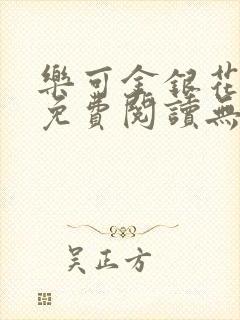 樂可金銀花
免費閱讀無
吳正方